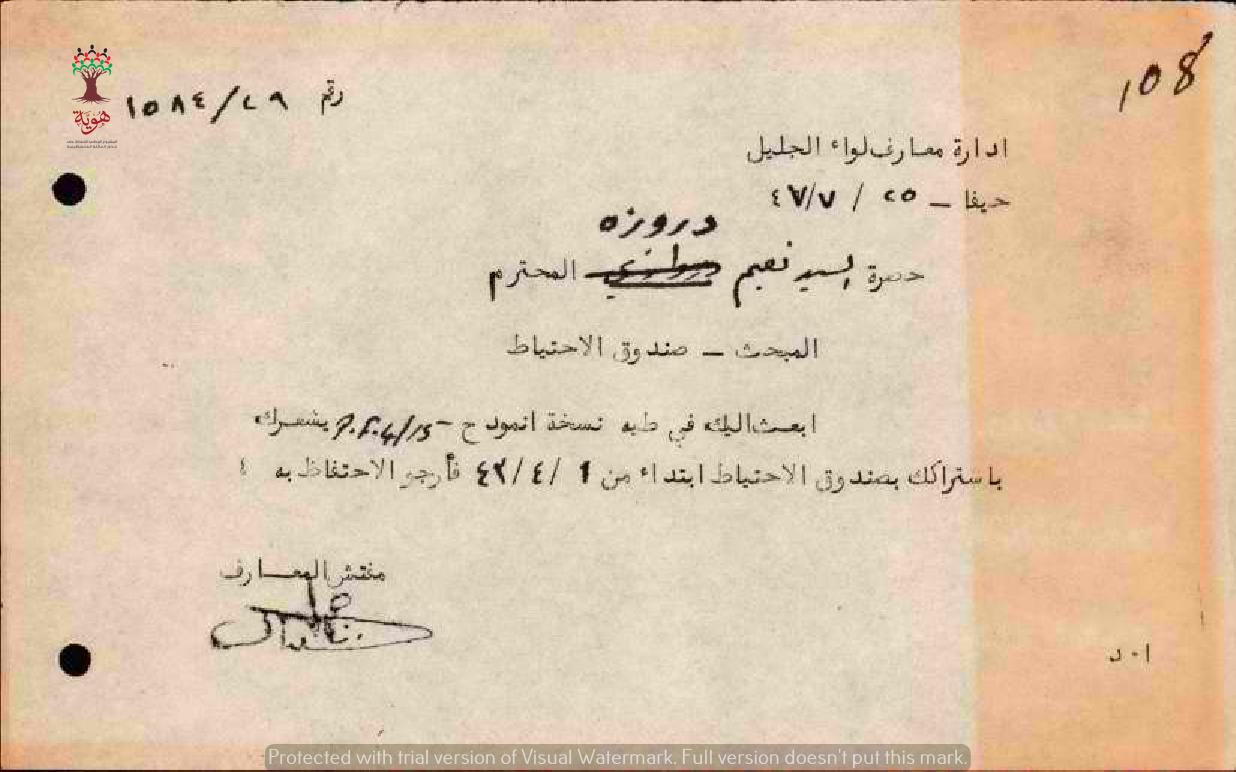 108
رقم ١٥٨٤/٢٩
هوية
ادارة معارف لواء الجليل
حيفا - ٢٥ / ٤٧/٧
دروزه
حضرة السيد نعيم المحترم
المبحث - صندوق الاحتياط
ابعث اليك في طيه نسخة انموذج - P.F.4/15 يشعرك
باشتراكك بصندوق الاحتياط ابتداء من ١ /٤ /٤٢ فأرجو الاحتفاظ به ؛
مفتش المعارف
ا٠د
Protected with trial version of Visual Watermark. Full version doesn't put this mark.